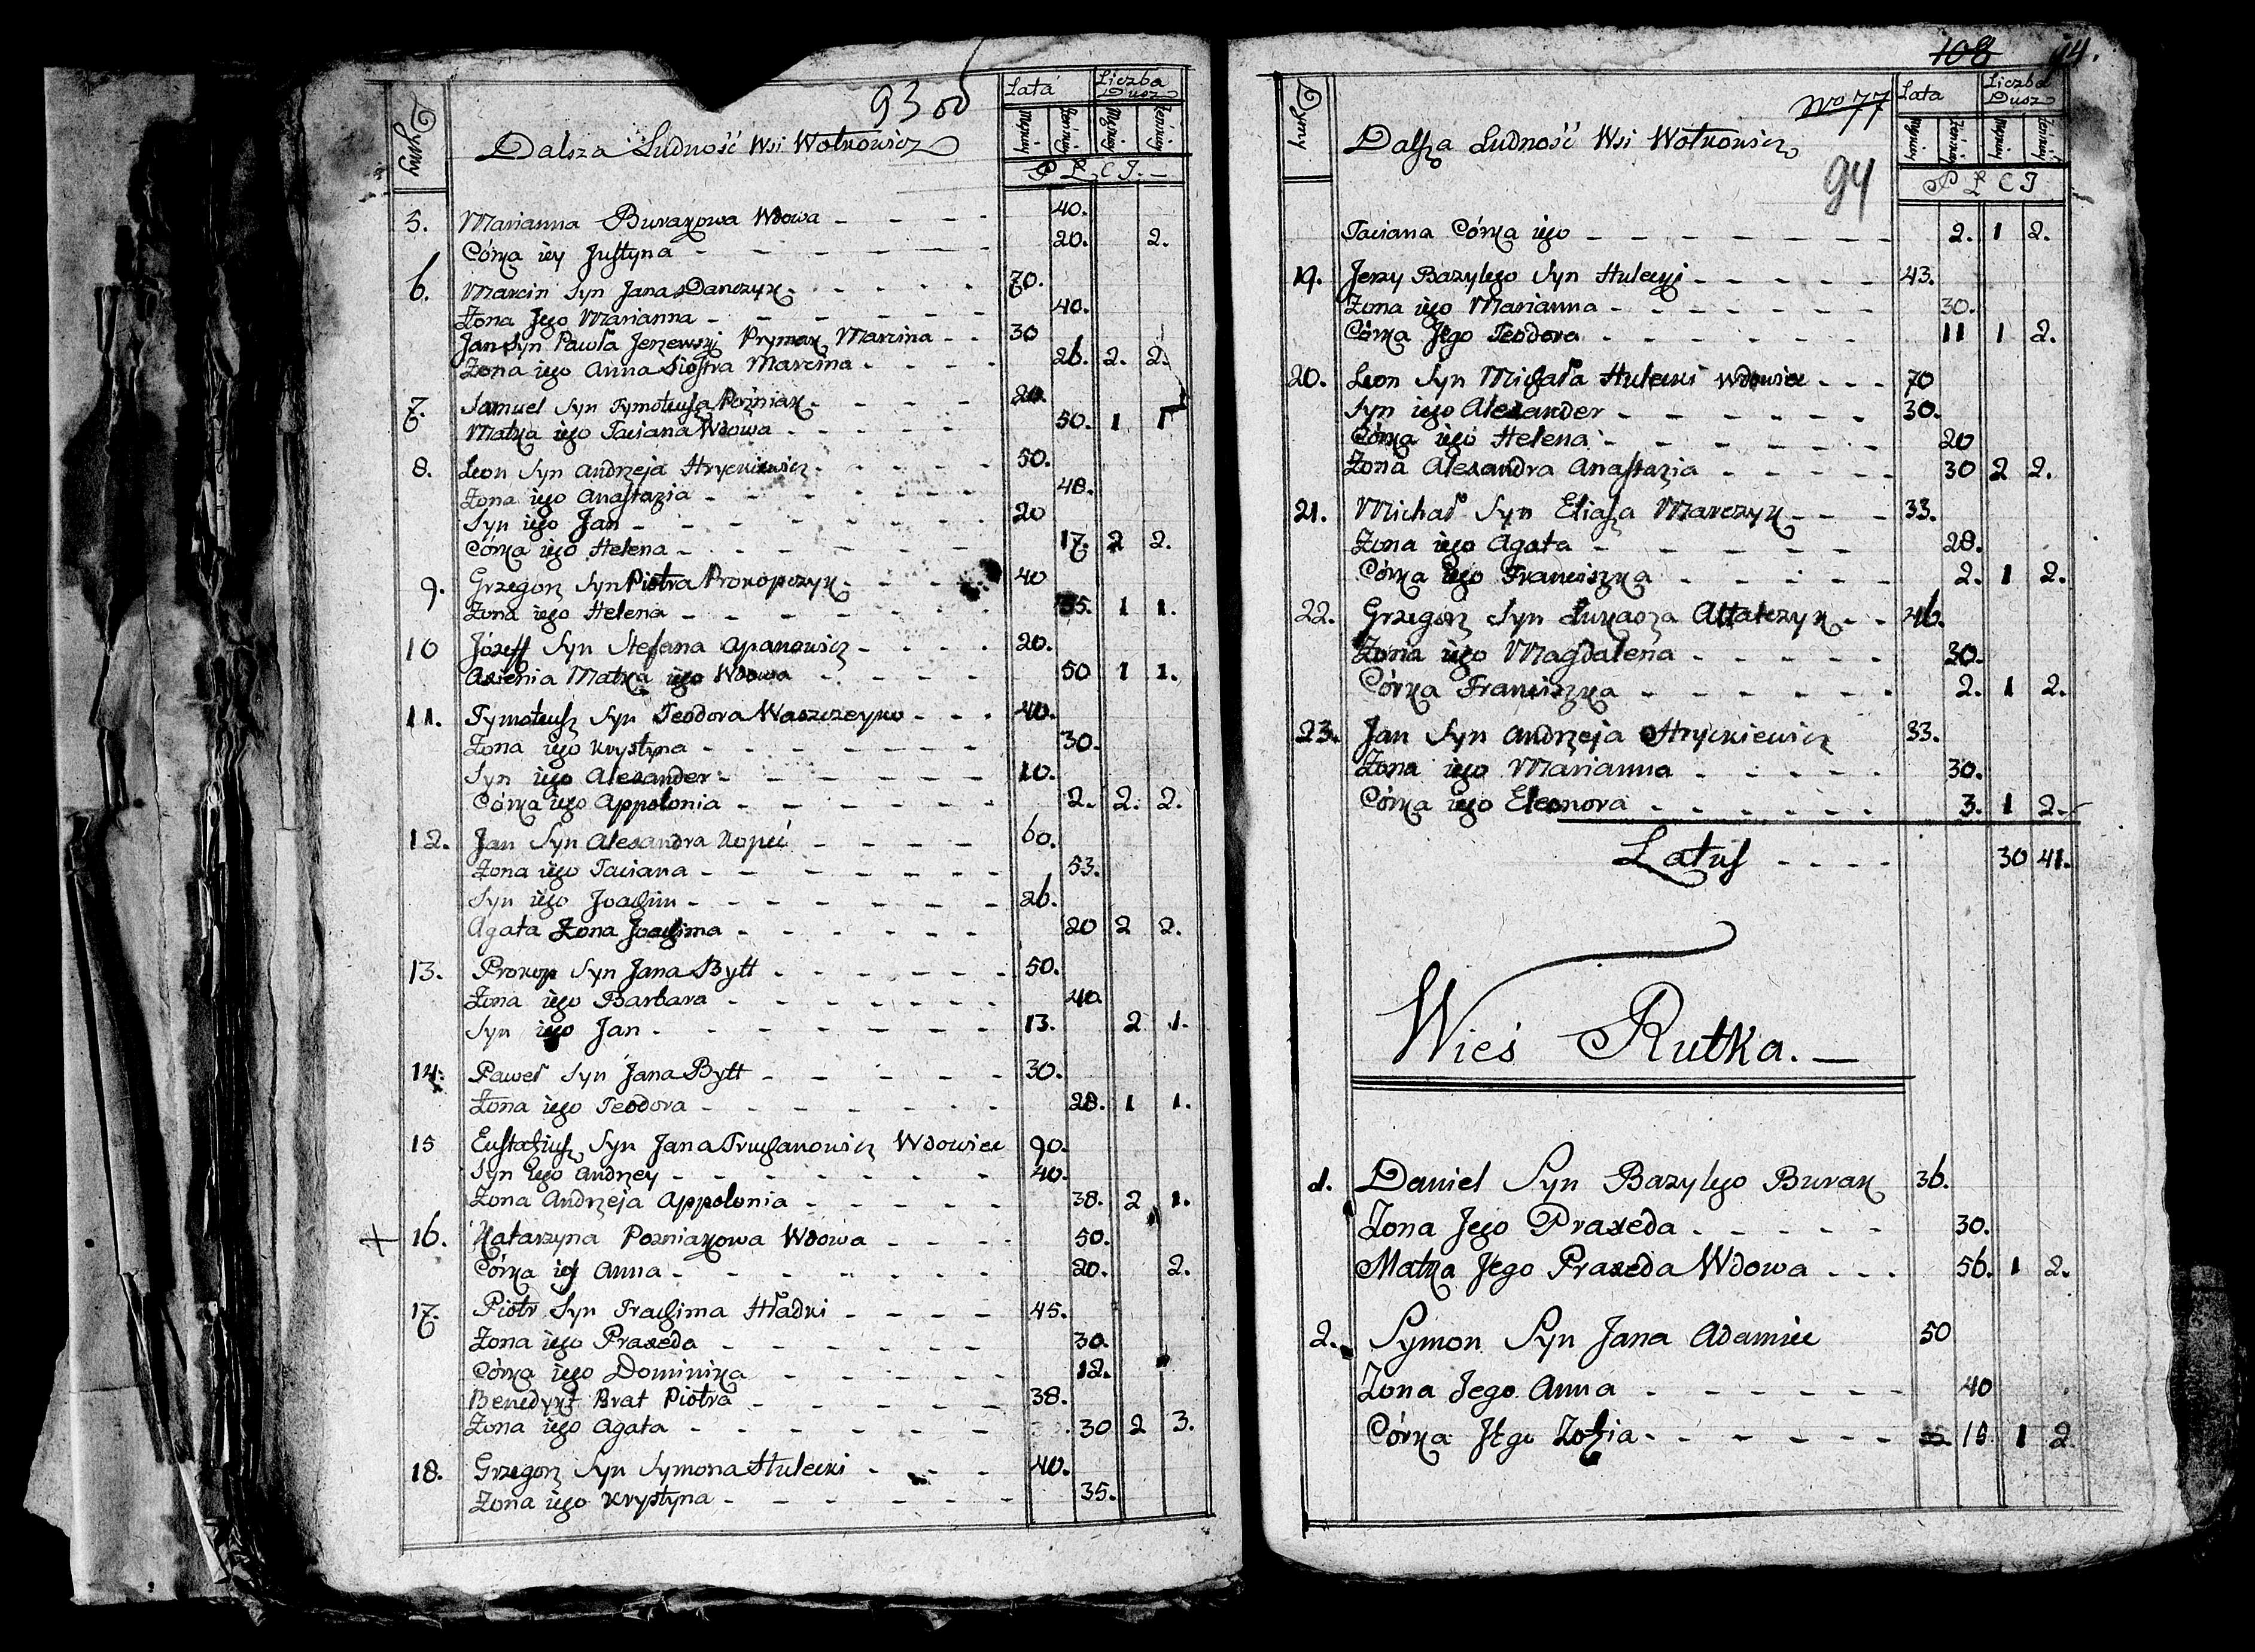 93 об
Dymy
Dalsza Ludność Wsi Wołkowicz
Lata
Liczba Dusz
Męzkiey Zenskiey Męzkiey Zenskiey
P Ł C I. —
5. Marianna Burakowa Wdowa - - - - 40.
Córka iey Justyna - - - - - 20. 2.
6. Marcin Syn Jana Danczyk - - - - - 70.
Żona Jego Marianna - - - - - - 40.
Jan Syn Pawła Jerzewski Prymak Marcina - - 30
Żona iego Anna Siostra Marcina - - - - 26. 2. 2.
7. Samuel Syn Tymoteusza Pozniak - - - - 20.
Matka iego Taciana Wdowa - - - - - 50. 1 1
8. Leon Syn Andrzeja Hryckiewicz - - - - - 50.
Żona iego Anastazia - - - - - - - 48.
Syn iego Jan - - - - - - - - 20
Córka iego Helena - - - - - - - 17. 2 2.
9. Grzegorz Syn Piotra Prokopczyk - - - - 40
Żona iego Helena - - - - - 35. 1 1.
10 Józeff Syn Stefana Apanowicz - - - - 20.
Axienia Matka iego Wdowa - - - - - 50 1 1.
11. Tymoteusz Syn Teodora Waszczeyko - - - 40.
Żona iego Krystyna - - - - - - - 30.
Syn iego Alexander - - - - - - - 10.
Córka iego Appolonia - - - - - - - 2. 2. 2.
12. Jan Syn Alexandra Kopeć - - - - - 60.
Żona iego Taciana - - - - - - - - 53.
Syn iego Joachim - - - - - - - - 26.
Agata Żona Joachima - - - - - - 20 2 2.
13. Prokop Syn Jana Bytt - - - - - - 50.
Żona iego Barbara - - - - - - - 40.
Syn iego Jan - - - - - - - - 13. 2 1.
14. Paweł Syn Jana Bytt - - - - - - 30.
Żona iego Teodora - - - - - - - - 28. 1 1.
15 Eustachiusz Syn Jana Truchanowicz Wdowiec 90.
Syn iego Andrzey - - - - - - - - 40.
Żona Andrzeja Appolonia - - - - - - 38. 2 1.
+ 16. Katarzyna Pozniakowa Wdowa - - - - 50.
Córka iey Anna - - - - - - - - 20. 2.
17. Piotr Syn Trachima Hładki - - - - 45.
Żona iego Praxeda - - - - - - - 30.
Córka iego Dominika - - - - - - 12.
Benedykt Brat Piotra - - - - - - 38.
Żona iego Agata - - - - - - - 30 2 3.
18. Grzegorz Syn Symona Hulecki - - - - 40.
Żona iego Krystyna - - - - - - - 35.
108 14.
Dymy
No 77
Dalsza Ludność Wsi Wołkowicz
94
Lata
Liczba Dusz
Męzkiey Zenskiey Męzkiey Zenskiey
P Ł C I
Taciana Córka iego - - - - - - - - 2. 1 2.
19. Jerzy Bazylego Syn Hulecki - - - - - 43.
Żona iego Marianna - - - - - - - 30.
Córka Jego Teodora - - - - - - - 11 1 2.
20. Leon Syn Michała Hulecki Wdowiec - - - 70
Syn iego Alexander - - - - - - - 30.
Córka iego Helena - - - - - - - 20
Żona Alexandra Anastazia - - - - - 30 2 2.
21. Michał Syn Eliasza Marczyk - - - 33.
Żona iego Agata - - - - - - 28.
Córka iego Franciszka - - - - - 2. 1 2.
22. Grzegorz Syn Łukasza - - 46.
Żona iego Magdalena - - - - - 30.
Córka Franciszka - - - - - - - 2. 1 2.
23. Jan Syn Andrzeja Hryckiewicz 33.
Żona iego Marianna - - - - - 30.
Córka iego Eleonora - - - - - - 3. 1 2.
Latus - - - - 30 41.
Wieś Rutka. —
1. Daniel Syn Bazylego Burak 36.
Żona Jego Praxeda - - - - - 30.
Matka Jego Praxeda Wdowa - - - 56. 1 2.
2. Symon Syn Jana Adamiec 50
Żona Jego Anna - - - - - - - 40
Córka Jego Zofia - - - - - - - 16 1 2.